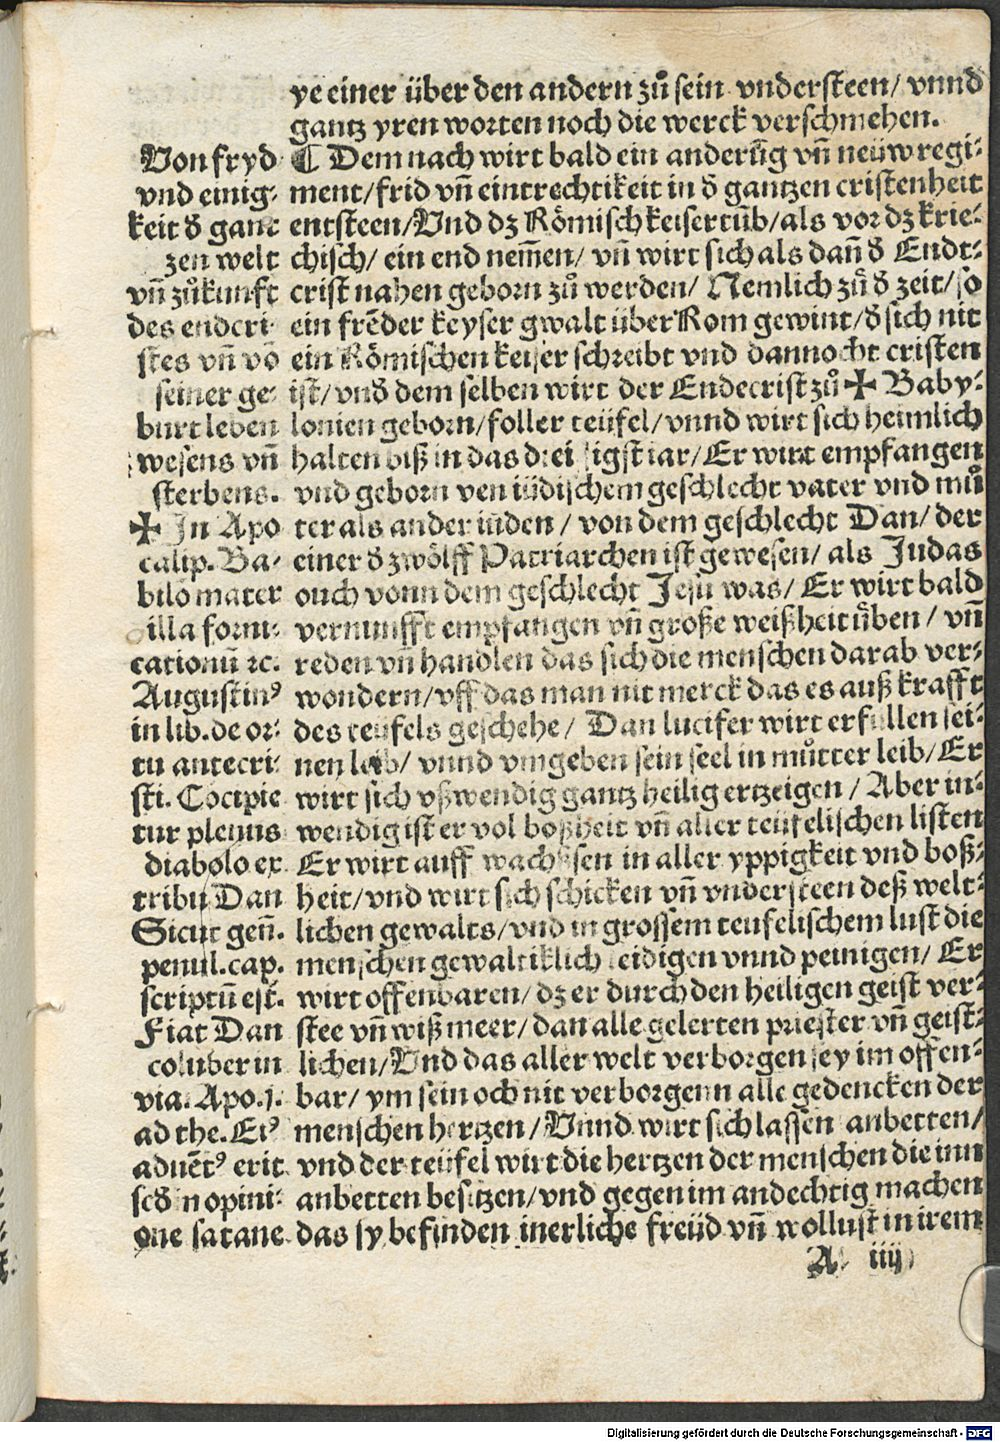 ye einer über den andern zuͦ sein vndersteen/ vnnd
gantz yren worten noch die werck verschmehen.
¶ Dem nach wirt bald ein anderūg vñ neüw regi-
ment/ frid vñ eintrechtikeit in d̕ gantzen cristenheit
entsteen/ Vnd dz Römisch keisertūb/ als vor dz krie-
chisch/ ein end nem̃en/ vñ wirt sich als dañ d̕ Endt-
crist nahen geborn zuͦ werden/ Nemlich zuͦ d̕ zeit/ so
ein frēder keyser gwalt über Rom gewint/ d̕ sich nit
ein Römischen keiser schreibt vnd dannocht cristen
ist/ vnd̕ dem selben wirt der Endecrist zuͦ ✠ Baby-
lonien geborn/ foller teüfel/ vnnd wirt sich heimlich
halten biß in das drei sigst iar/ Er wirt empfangen
vnd geborn ven iüdischem geschlecht vater vnd muͦ
ter als ander iuden/ von dem geschlecht Dan/ der
einer d̕ zwölff Patriarchen ist gewesen/ als Judas
ouch vonn dem geschlecht Jesu was/ Er wirt bald
vernunfft empfangen vñ große weißheit üben/ vñ
reden vñ handlen das sich die menschen darab ver-
wondern/ vff das man nit merck das es auß krafft
des teüfels geschehe/ Dan lucifer wirt erfullen sei-
nen leib/ vnnd vmgeben sein seel in muͦtter leib/ Er
wirt sich vßwendig gantz heilig ertzeigen/ Aber in-
wendig ist er vol boßheit vñ aller teüfelischen listen
Er wirt auff wachssen in aller yppigkeit vnd boß-
heit/ vnd wirt sich schicken vñ vndersteen deß welt-
lichen gewalts/ vnd in grossem teufelischem lust die
menschen gewaltiklich leidigen vnnd peinigen/ Er
wirt offenbaren/ dz er durch den heiligen geist ver-
stee vñ wiß meer/ dan alle gelerten priester vñ geist-
lichen/ Vnd das aller welt verborgen sey im offen-
bar/ ym sein och nit verborgenn alle gedencken der
menschen hertzen/ Vnnd wirt sich lassen anbetten/
vnd der teüfel wirt die hertzen der menschen die inn
anbetten besitzen/ vnd gegen im andechtig machen
das sy befinden inerliche freüd vñ wollust in irem
A iiij
Von fryd
vnd einig-
keit d̕ gant
zen welt
vñ zuͦkunft
des endcri-
stes vñ vō
seiner ge-
burt leben
wesens vñ
sterbens.
✠ In Apo
calip. Ba-
bilo mater
illa forni-
cationū ꝛc.
Augustinꝰ
in lib. de or-
tu antecri-
sti. Cocipie
tur plenus
diabolo ex
tribu Dan
Sicut geñ.
penul. cap.
scriptū est.
Fiat Dan
coluber in
via. Apo. 1.
ad the. Eiꝰ
aduētꝰ erit
scd̕ n opini-
one satane
Digitalisierung gefördert durch die Deutsche Forschungsgemeinschaft - DFG